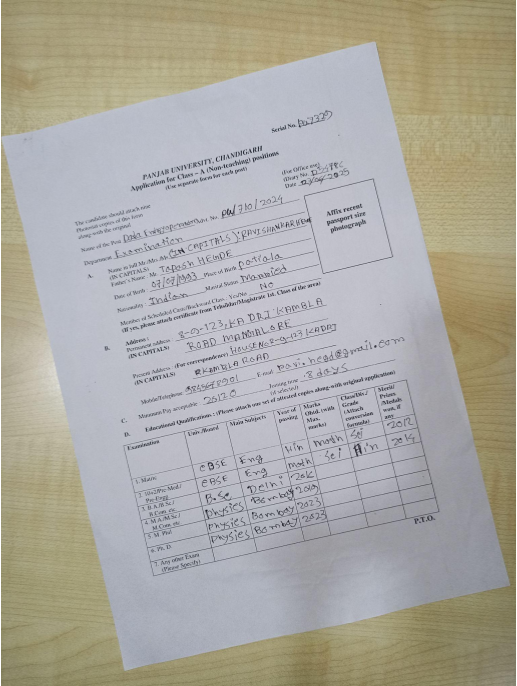 Serial No. pu7325
PANJAB UNIVERSITY, CHANDIGARH
Application for Class – A (Non-teaching) positions
(Use separate form for each post)
(For Office use)
(Diary No.
Date 03/04/2025
The candidate should attach nine
Photostat copies of this form
along with the original
Name of the Post Data Advt. No. PU/710/2024
Department Examination
Affix recent
passport size
photograph
A. Name in full Mr./Ms. (IN CAPITALS): RAVISHANKAR HEGDE
(IN CAPITALS)
Father's Name Mr. Tapash HEGDE
Date of Birth 07/07/1993 Place of Birth patiala
Nationality Indian Marital Status Married
Member of Scheduled Caste/Backward Class Yes/No No
(If yes, please attach certificate from Tehsildar/Magistrate 1st. Class of the area)
B. Address :
Permanent address : 8-9-123, KADRI KAMBLA
(IN CAPITALS) ROAD MANGALORE
Present Address : (For correspondence) HouseNo 8-9-123 KADRI
(IN CAPITALS) KAMBLA ROAD
Mobile/Telephone E-mail ravi.hegd@gmail.com
C. Minimum Pay acceptable 20120 Joining time : 8 days
(if selected)
D. Educational Qualifications : (Please attach one set of attested copies along with original application)
Examination Univ./Board Main Subjects Year of passing Marks Obtd. (with Max. marks) Class/Div./ Grade (Attach conversion formula) Merit/ Prizes /Medals won, if any
1. Matric CBSE Eng Hin math Sci 2012
2. 10+2/Pre-Med./ Pre-Engg. CBSE Eng math Sci Hin 2014
3. B.A./B.Sc./ B.Com. etc. B.Sc Delhi
4. M.A./M.Sc./ M.Com. etc. Physics Bombay 2019
5. M. Phil Physics Bombay 2023
6. Ph. D. Physics Bombay 2023
7. Any other Exam (Please Specify)
P.T.O.